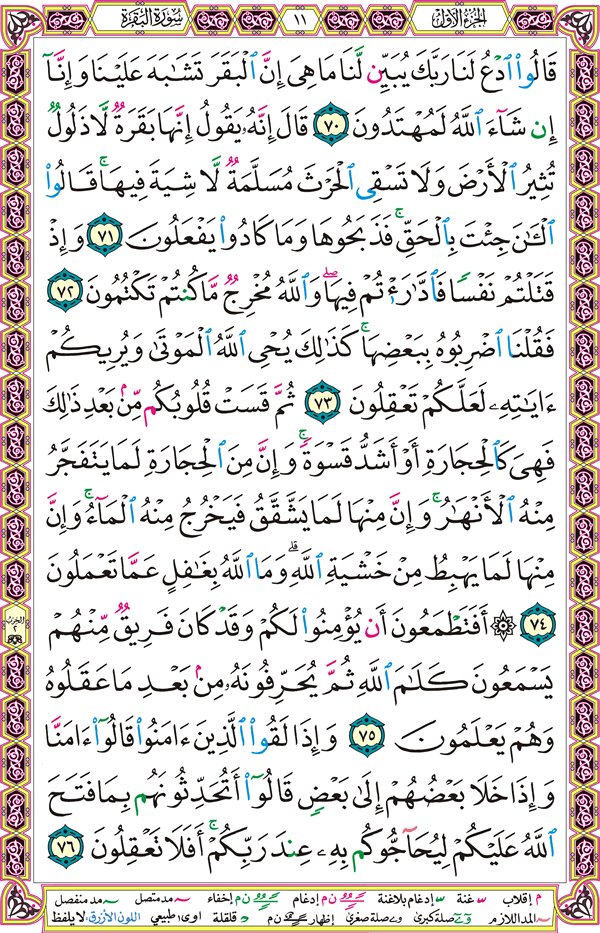 الجزء الأول
١١
سورة البقرة
قَالُوا۟ ٱدْعُ لَنَا رَبَّكَ يُبَيِّن لَّنَا مَا هِىَ إِنَّ ٱلْبَقَرَ تَشَٰبَهَ عَلَيْنَا وَإِنَّآ
إِن شَآءَ ٱللَّهُ لَمُهْتَدُونَ ٧٠ قَالَ إِنَّهُۥ يَقُولُ إِنَّهَا بَقَرَةٌ لَّا ذَلُولٌ
تُثِيرُ ٱلْأَرْضَ وَلَا تَسْقِى ٱلْحَرْثَ مُسَلَّمَةٌ لَّا شِيَةَ فِيهَا ۚ قَالُوا۟
ٱلْـَٰٔنَ جِئْتَ بِٱلْحَقِّ ۚ فَذَبَحُوهَا وَمَا كَادُوا۟ يَفْعَلُونَ ٧١ وَإِذْ
قَتَلْتُمْ نَفْسًا فَٱدَّٰرَْٰٔتُمْ فِيهَا ۖ وَٱللَّهُ مُخْرِجٌ مَّا كُنتُمْ تَكْتُمُونَ ٧٢
فَقُلْنَا ٱضْرِبُوهُ بِبَعْضِهَا ۚ كَذَٰلِكَ يُحْىِ ٱللَّهُ ٱلْمَوْتَىٰ وَيُرِيكُمْ
ءَايَٰتِهِۦ لَعَلَّكُمْ تَعْقِلُونَ ٧٣ ثُمَّ قَسَتْ قُلُوبُكُم مِّنۢ بَعْدِ ذَٰلِكَ
فَهِىَ كَٱلْحِجَارَةِ أَوْ أَشَدُّ قَسْوَةً ۚ وَإِنَّ مِنَ ٱلْحِجَارَةِ لَمَا يَتَفَجَّرُ
مِنْهُ ٱلْأَنْهَٰرُ ۚ وَإِنَّ مِنْهَا لَمَا يَشَّقَّقُ فَيَخْرُجُ مِنْهُ ٱلْمَآءُ ۚ وَإِنَّ
مِنْهَا لَمَا يَهْبِطُ مِنْ خَشْيَةِ ٱللَّهِ ۗ وَمَا ٱللَّهُ بِغَٰفِلٍ عَمَّا تَعْمَلُونَ
٧٤ ۞ أَفَتَطْمَعُونَ أَن يُؤْمِنُوا۟ لَكُمْ وَقَدْ كَانَ فَرِيقٌ مِّنْهُمْ
يَسْمَعُونَ كَلَٰمَ ٱللَّهِ ثُمَّ يُحَرِّفُونَهُۥ مِنۢ بَعْدِ مَا عَقَلُوهُ
وَهُمْ يَعْلَمُونَ ٧٥ وَإِذَا لَقُوا۟ ٱلَّذِينَ ءَامَنُوا۟ قَالُوٓا۟ ءَامَنَّا
وَإِذَا خَلَا بَعْضُهُمْ إِلَىٰ بَعْضٍ قَالُوٓا۟ أَتُحَدِّثُونَهُم بِمَا فَتَحَ
ٱللَّهُ عَلَيْكُمْ لِيُحَآجُّوكُم بِهِۦ عِندَ رَبِّكُمْ ۚ أَفَلَا تَعْقِلُونَ ٧٦
الحزب ٢
م إقلاب غنة إدغام بلاغنة ن م إدغام ن م إخفاء مد متصل مد منفصل
المد اللازم صلة كبرى صلة صغرى إظهار ن م قلقلة اوى: طبيعي اللون الأزرق: لا يلفظ